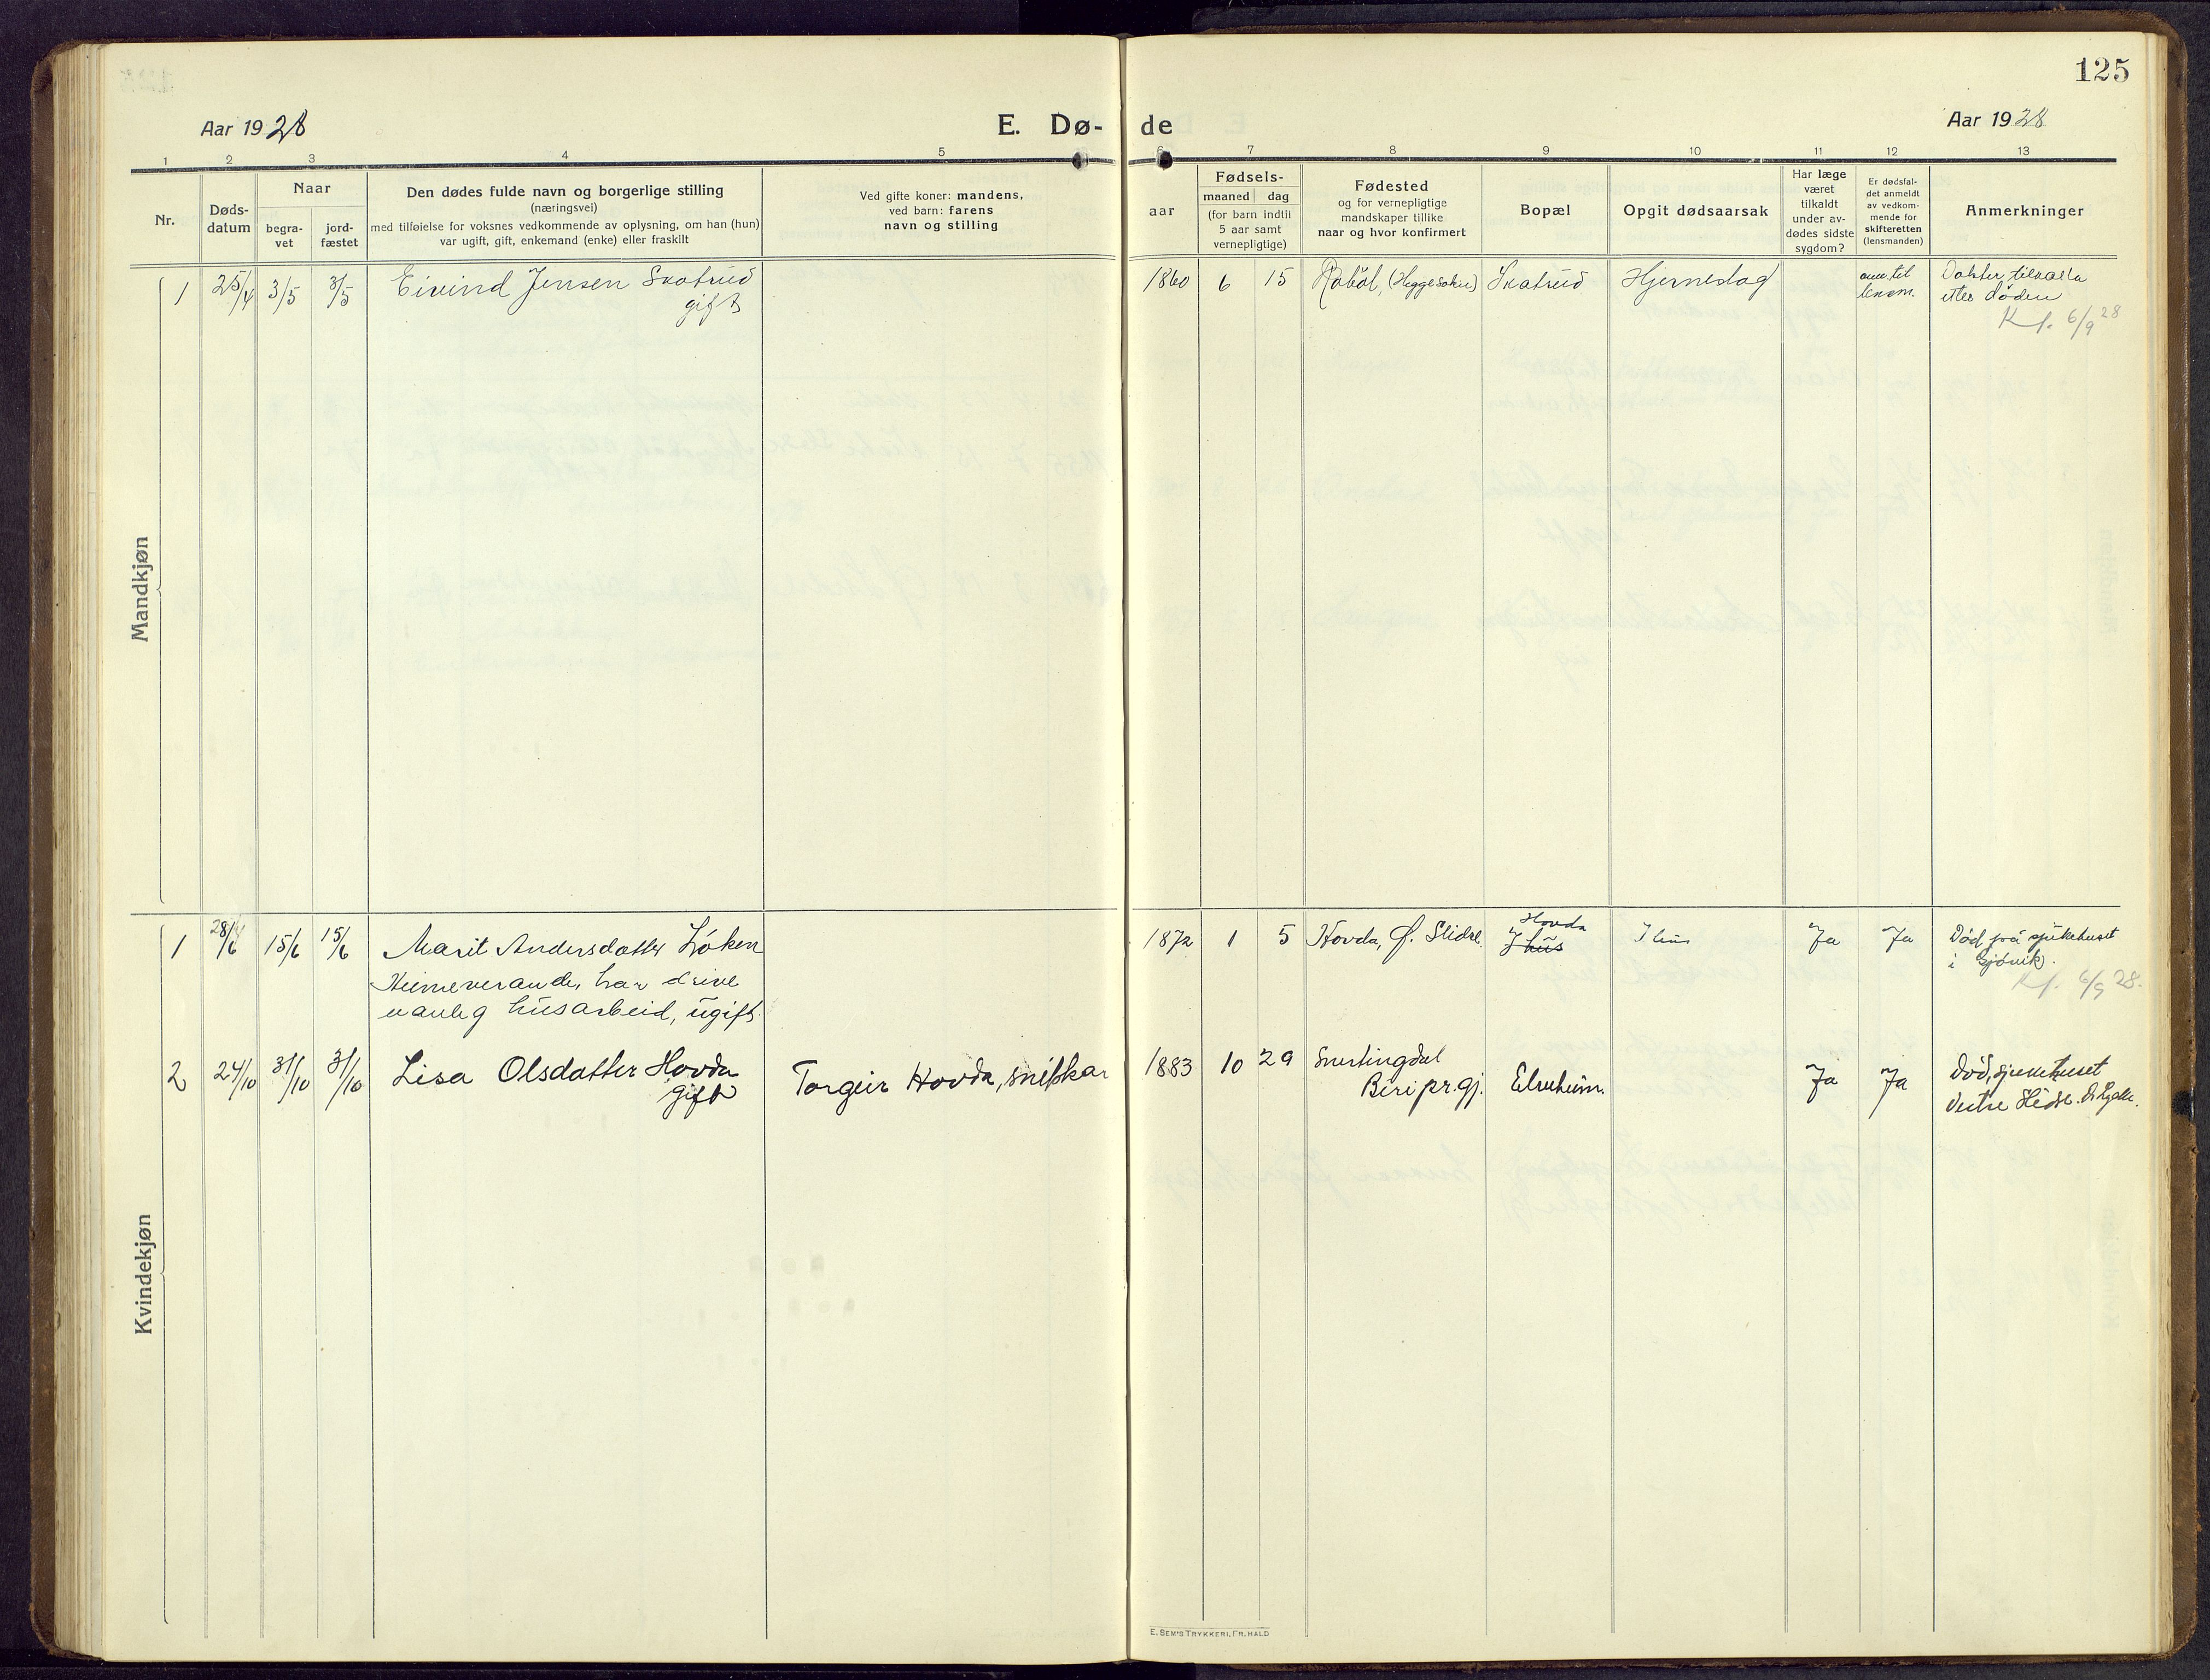 125
Aar 1928
E. Dø-
de
Aar 1928
1 2 3 4 5 6 7 8 9 10 11 12 13
Nr.
Døds-
datum
Naar
begra-
vet
jord-
fæstet
Den dødes fulde navn og borgerlige stilling
(næringsvei)
med tilføielse for voksnes vedkommende av oplysning, om han (hun)
var ugift, gift, enkemand (enke) eller fraskilt
Ved gifte koner: mandens,
ved barn: farens
navn og stilling
aar
Fødsels-
maaned dag
(for barn indtil
5 aar samt
vernepligtige)
Fødested
og for vernepligtige
mandskaper tillike
naar og hvor konfirmert
Bopæl
Opgit dødsaarsak
Har læge
været
tilkaldt
under av-
dødes sidste
sygdom?
Er dødsfal-
det anmeldt
av vedkom-
mende for
skifteretten
(lensmanden)
Anmerkninger
Mandkjøn
1 25/4 3/5 3/5 Eivind Jensen Skatrud
gift
1860 6 15 Robøl, (Heggesokn) Skatrud Hjerneslag
Dokter tilkalla
etter døden
Kf. 6/9 28
Kvindekjøn
1 15/6 15/6 Marit Andersdotter Løken
Heimeverande, har drive
vanleg husarbeid, ugift.
1872 1 5 Hovda, Ø. Slidre. Hovda
Ja Ja Død på sjukehuset
i Gjøvik.
Kf. 6/9 28.
2 24/10 31/10 31/10 Lisa Olsdatter Hovda
gift
Torgeir Hovda, snikkar
1883 10 29 Snertingdal
Biri pr.gj. Elveheim.
Ja Ja Død, sjukehuset
Vestre Slidre.
E. SEM'S TRYKKERI, FR. HALD